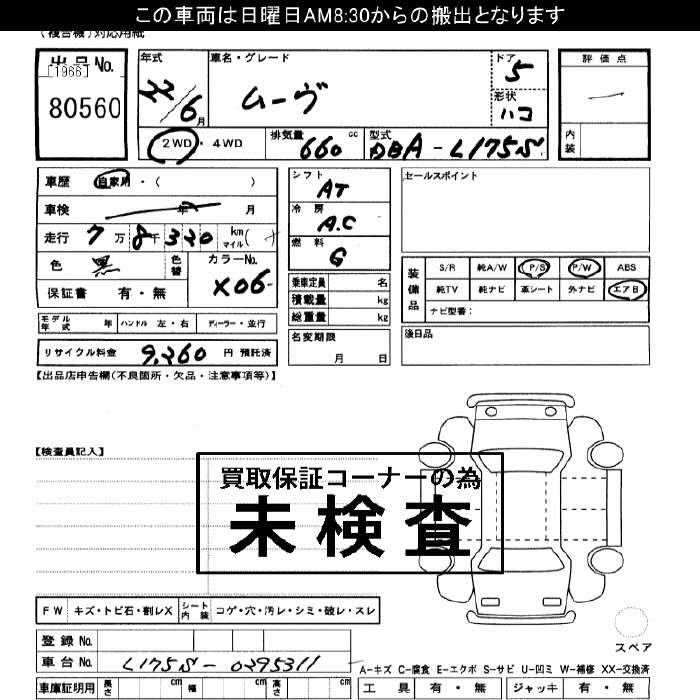 この車両は日曜日AM8:30からの搬出となります
(複合機)対応用紙
出品No. [1966] 80560
年式 22/6月
車名・グレード ムーヴ
ドア 5
形状 ハコ
評価点 —
内装
2WD・4WD
排気量 660 cc
型式 DBA-L175S
車歴 自家用・( )
車検 年 月
走行 7万8千320 km マイル(
色 黒 色替
カラーNo. X06
保証書 有・無
シフト AT
冷房 A.C
燃料 G
乗車定員 名
積載量 kg
総重量 kg
セールスポイント
装備品
S/R 純A/W P/S P/W ABS
純TV 純ナビ 革シート 外ナビ エアB
ナビ型番:
モデル年式 年 ハンドル 左・右 ディーラー・並行
名変期限 月 日
後日品
リサイクル料金 9,260 円 預託済
【出品店申告欄(不良箇所・欠品・注意事項等)】
【検査員記入】
買取保証コーナーの為
未検査
FW キズ・トビ石・割レX シート内装 コゲ・穴・汚レ・シミ・破レ・スレ
スペア
登録No.
車台No. L175S-0295311
A-キズ C-腐食 E-エクボ S-サビ U-凹ミ W-補修 XX-交換済
車庫証明用 長さ cm 幅 cm 高さ cm
工具 有・無 ジャッキ 有・無